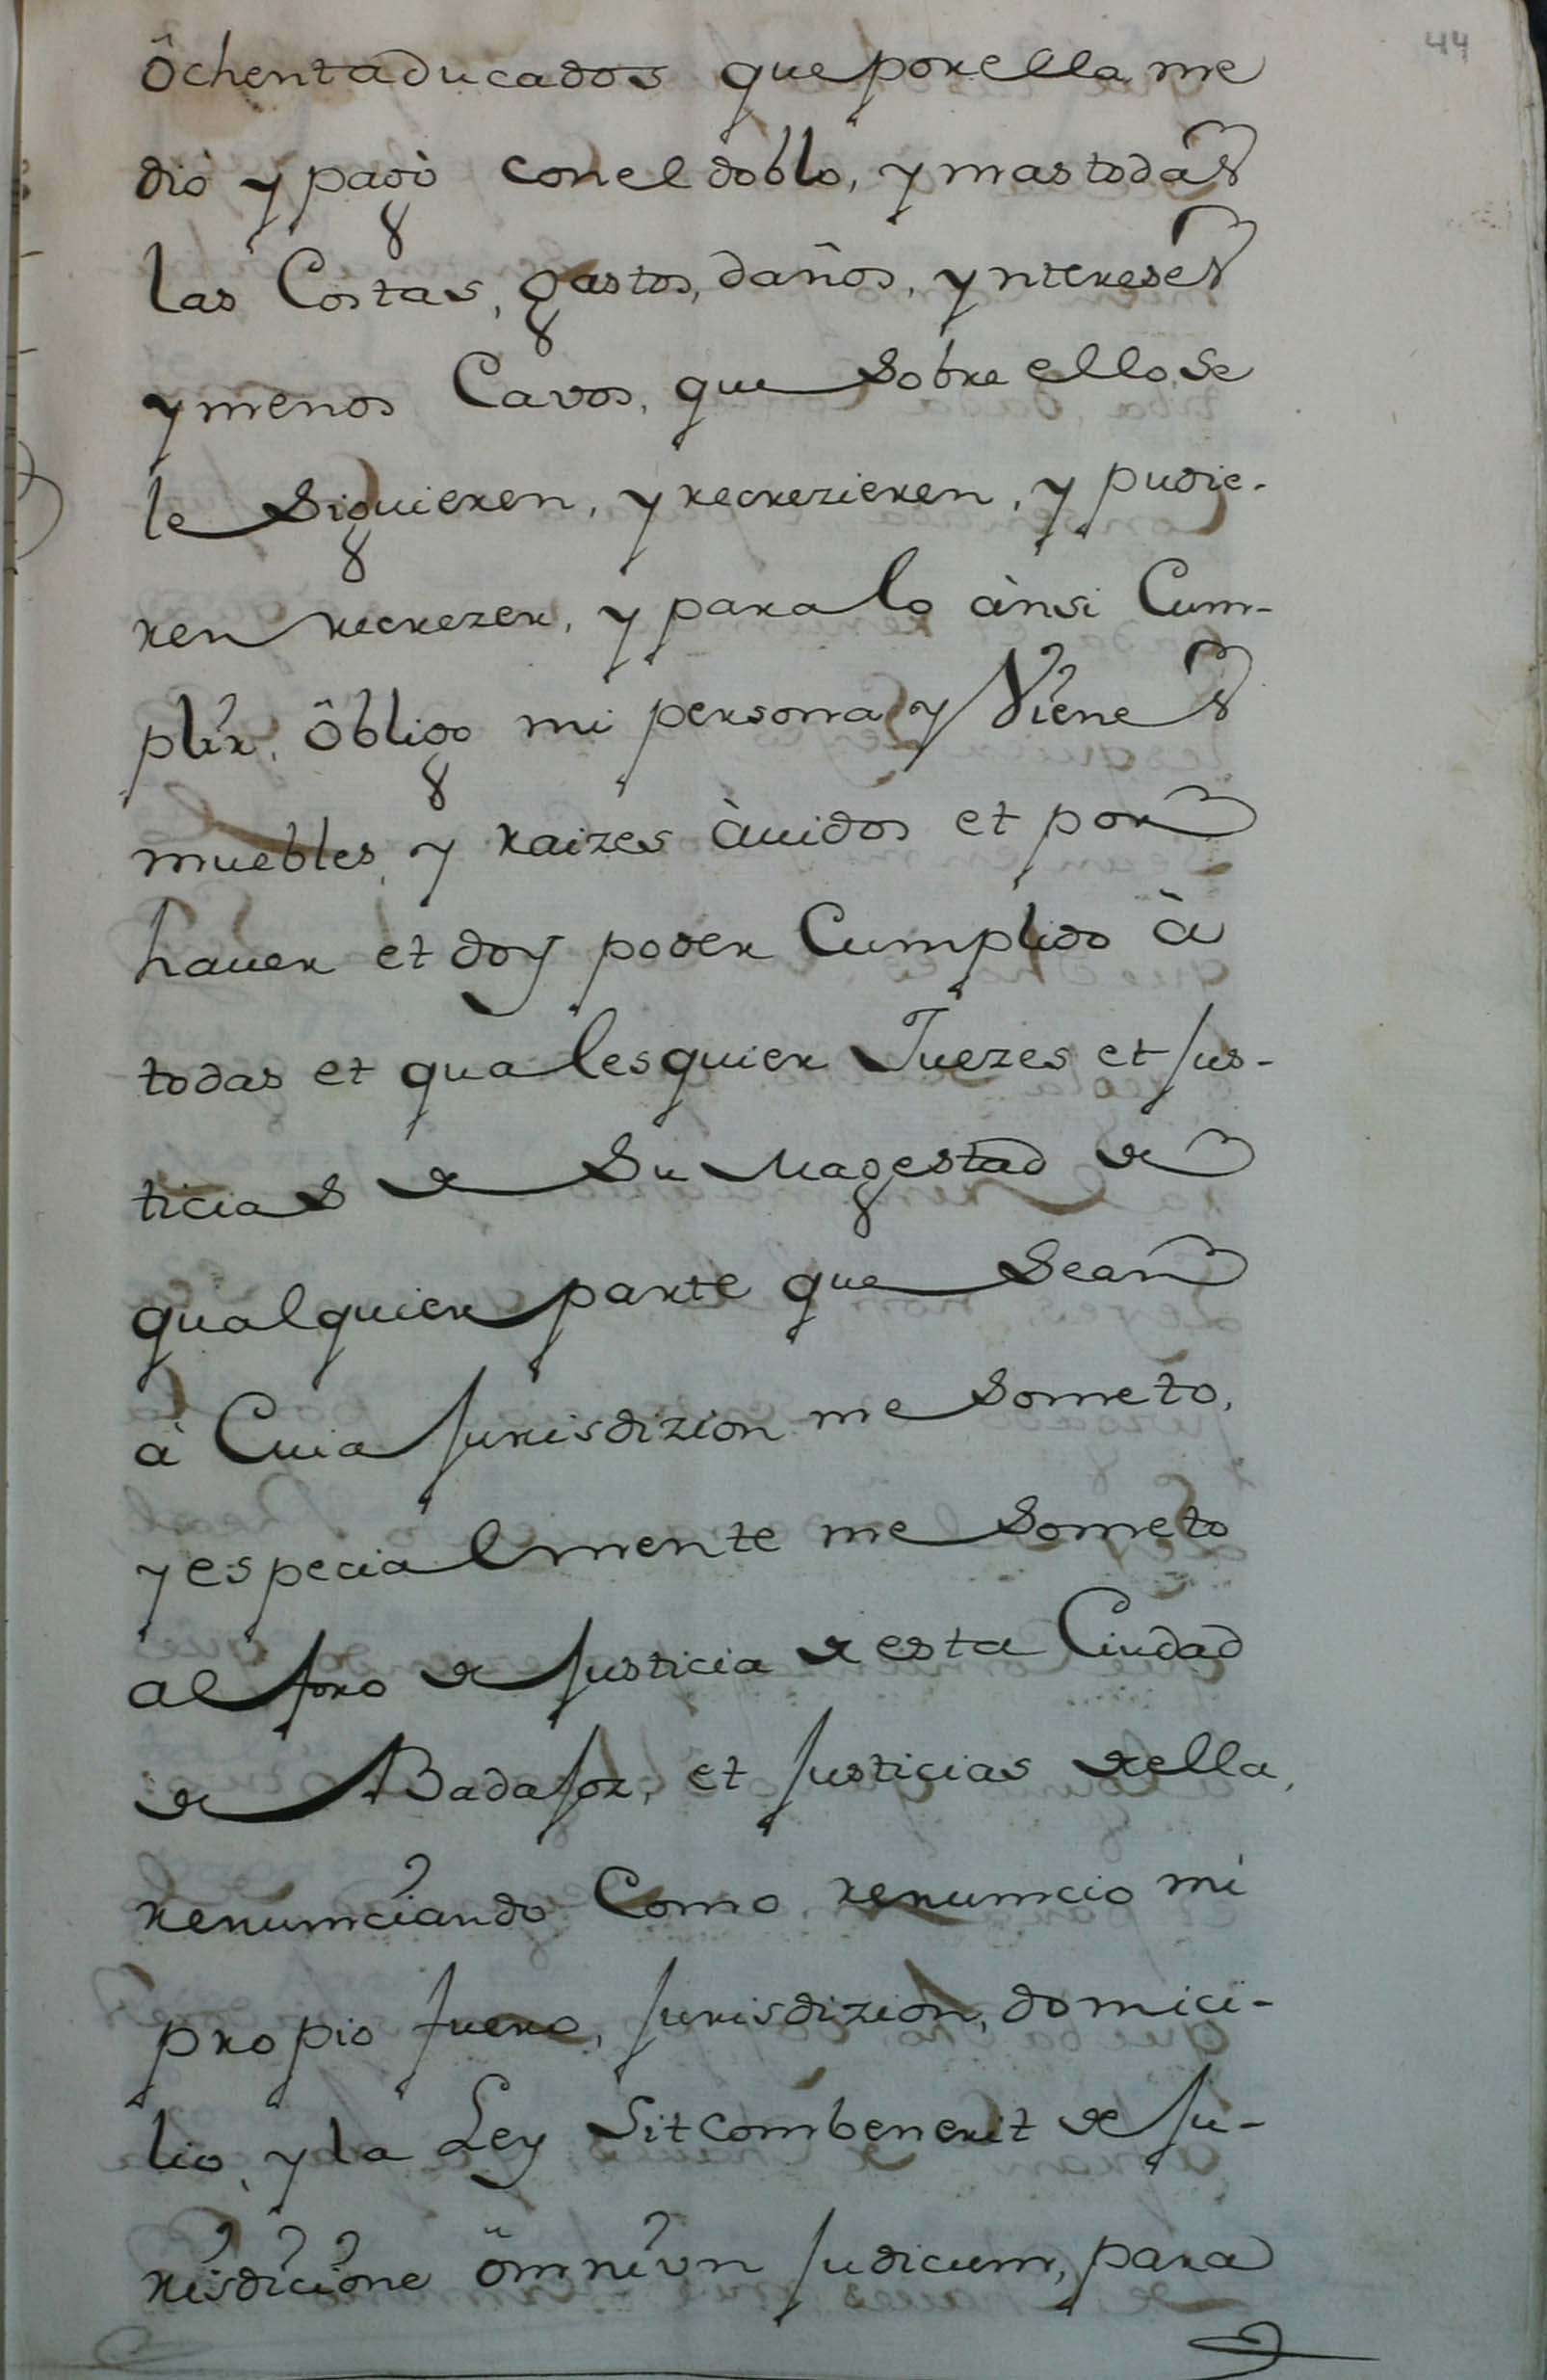 44
ôchenta ducados que por ella me
diò y pagò con el doblo, y mas todas
las Costas, gastos, daños, yntereses
y menos Cavos, que sobre ello se
le siguieren, y recrezieren, y pudie-
ren recrezer, y para lo ànsi Cum-
plir, ôbligo mi persona y Vienes
muebles, y raizes àuidos et por
hauer et doy poder Cumplido à
todas et qualesquier Juezes et Jus-
ticias de Su Magestad de
qualquier parte que sean
à Cuia Jurisdizion me someto,
y especialmente me someto
al foro de Justicia de esta Ciudad
de Badajoz, et Justicias de ella,
renunciando Como renuncio mi
propio fuero, Jurisdizion, domici-
lio, y la Ley Sit combenerit de Ju-
risdicione omniun Judicum, para